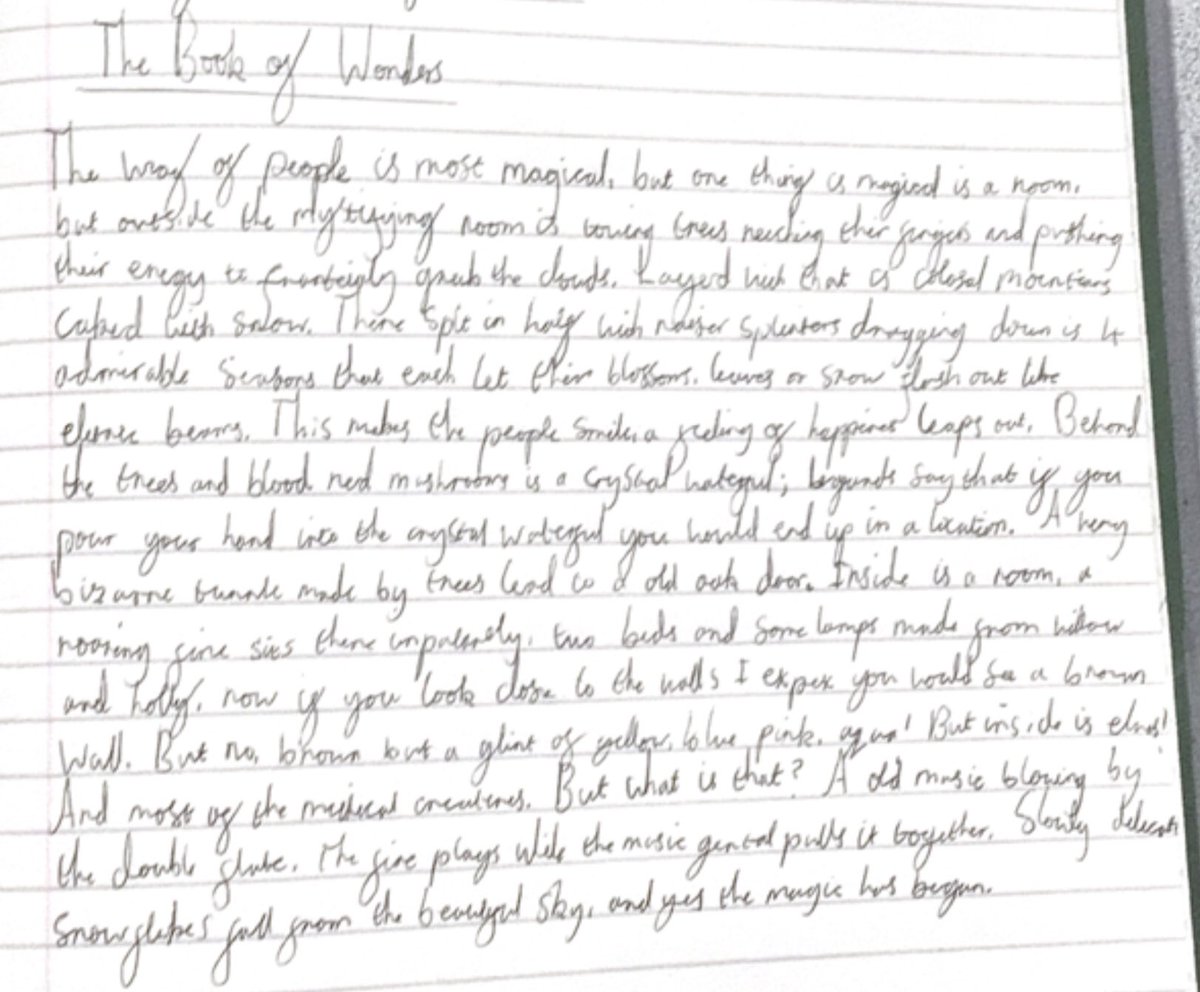 The Book of Wonders
The way of people is most magical, but one thing is magical is a room.
but outside the mystifying room is towing trees reaching ther fingers and pushing
their energy to grab the clouds. Layerd with that is colosal mountians
Caked with snow. There spit in half with splenters dragging down is 4
admirable seasons that each let thier blossoms, leaves or snow flash out like
beams. This makes the people smile, a feeling of happines leaps out. Behond
the trees and blood red mushrooms is a crystal waterful; legunds say that if you
pour your hand into the crystal waterful you would end up in a location. A very
bizarre tunnle made by trees lead to a old oak door. Inside is a room, a
rooring fire sits there, two beds and some lamps made from willow
and holly, now if you look close to the walls I expex you would see a brown
Wall. But no, brown but a glint of yellow, blue, pink, aqua! But inside is elves!
And most of the creatures. But what is that? A old music blowing by
the double flute. The fire plays while the music pulls it together. Slowly
Snowflakes fall from the beautyful sky, and yes the magic has begun.